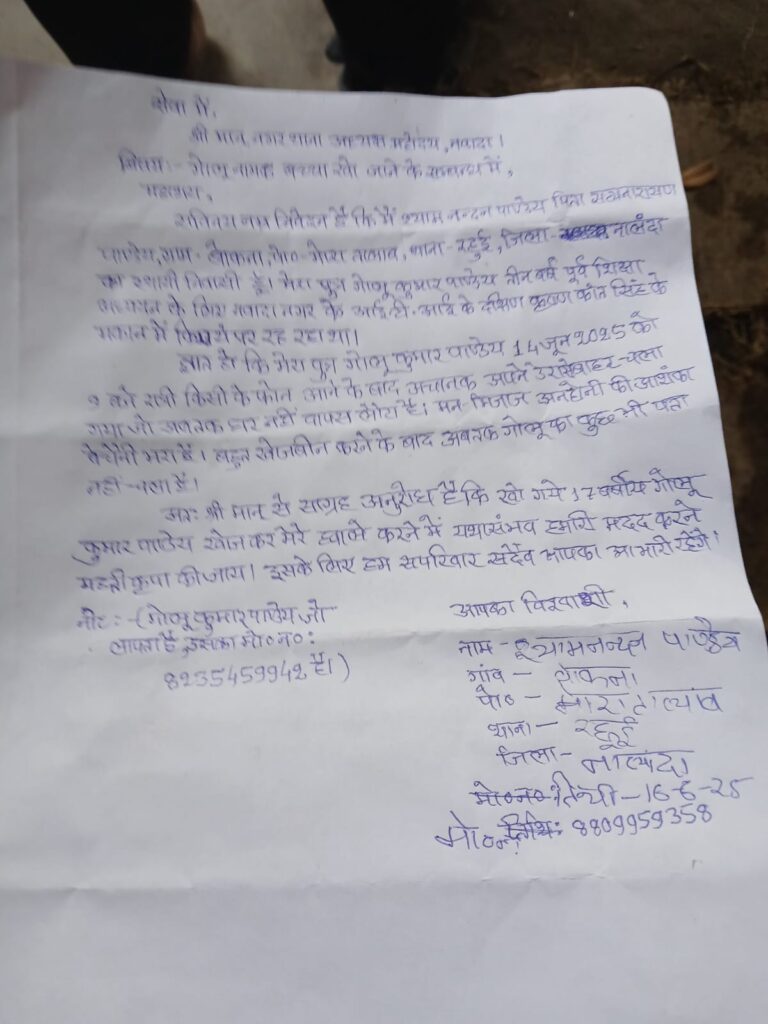 सेवा में,
श्री मान् नगर थाना अध्यक्ष महोदय, नवादा।
विषय:- गोलू नामक बच्चा खो जाने के सम्बन्ध में,
महाशय,
सविनय नम्र निवेदन है कि मैं श्याम नन्दन पाण्डेय पिता सत्यनारायण
पाण्डेय, ग्राम- पो०- मोरा तालाब, थाना- रहुई, जिला- नालंदा
का स्थायी निवासी हूँ। मेरा पुत्र गोलू कुमार पाण्डेय तीन वर्ष पूर्व शिक्षा
अध्ययन के लिए नवादा नगर के आई.टी.आई के दक्षिण कृष्ण कांत सिंह के
मकान में किराये पर रह रहा था।
ज्ञात हो कि मेरा पुत्र गोलू कुमार पाण्डेय 14 जून 2025 को
9 बजे रात्री किसी के फोन आने के बाद अचानक अपने डेरा से बाहर चला
गया जो अबतक घर नहीं वापस लौटा है। मन मिजाज अनहोनी की आशंका
बेचैनी भरा है। बहुत खोजबीन करने के बाद अबतक गोलू का कुछ भी पत्ता
नहीं चला है।
अतः श्री मान् से साग्रह अनुरोध है कि खो गये 17 वर्षीय गोलू
कुमार पाण्डेय खोज कर मेरे हवाले करने में यथासंभव हमारी मदद करने
महती कृपा की जाय। इसके लिए हम सपरिवार सदैव आपका आभारी रहेंगे।
नोट:- (गोलू कुमार पाण्डेय जो
लापता है, इसका मो० न०:
8235459942 है।)
आपका विश्वासी,
नाम - श्यामनन्दन पाण्डेय
गांव -
पो० - मोरा तालाब
थाना - रहुई
जिला - नालंदा
मो० न०: तिथी - 16-6-25
मो० न० तिथि: 8809959358